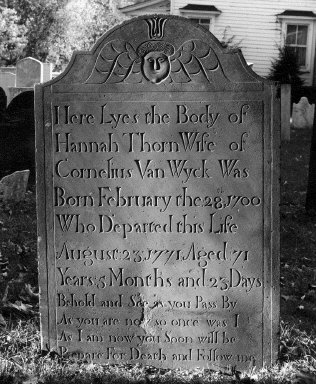 Here Lyes the Body of
Hannah Thorn Wife of
Cornelius Van Wyck Was
Born February the 28, 1700
Who Departed this Life
August 23, 1771 Aged 71
Years 5 Months and 23 Days
Behold and See as you Pass By
As you are now so once was I
As I am now you Soon will be
Prepare For Death and Follow me